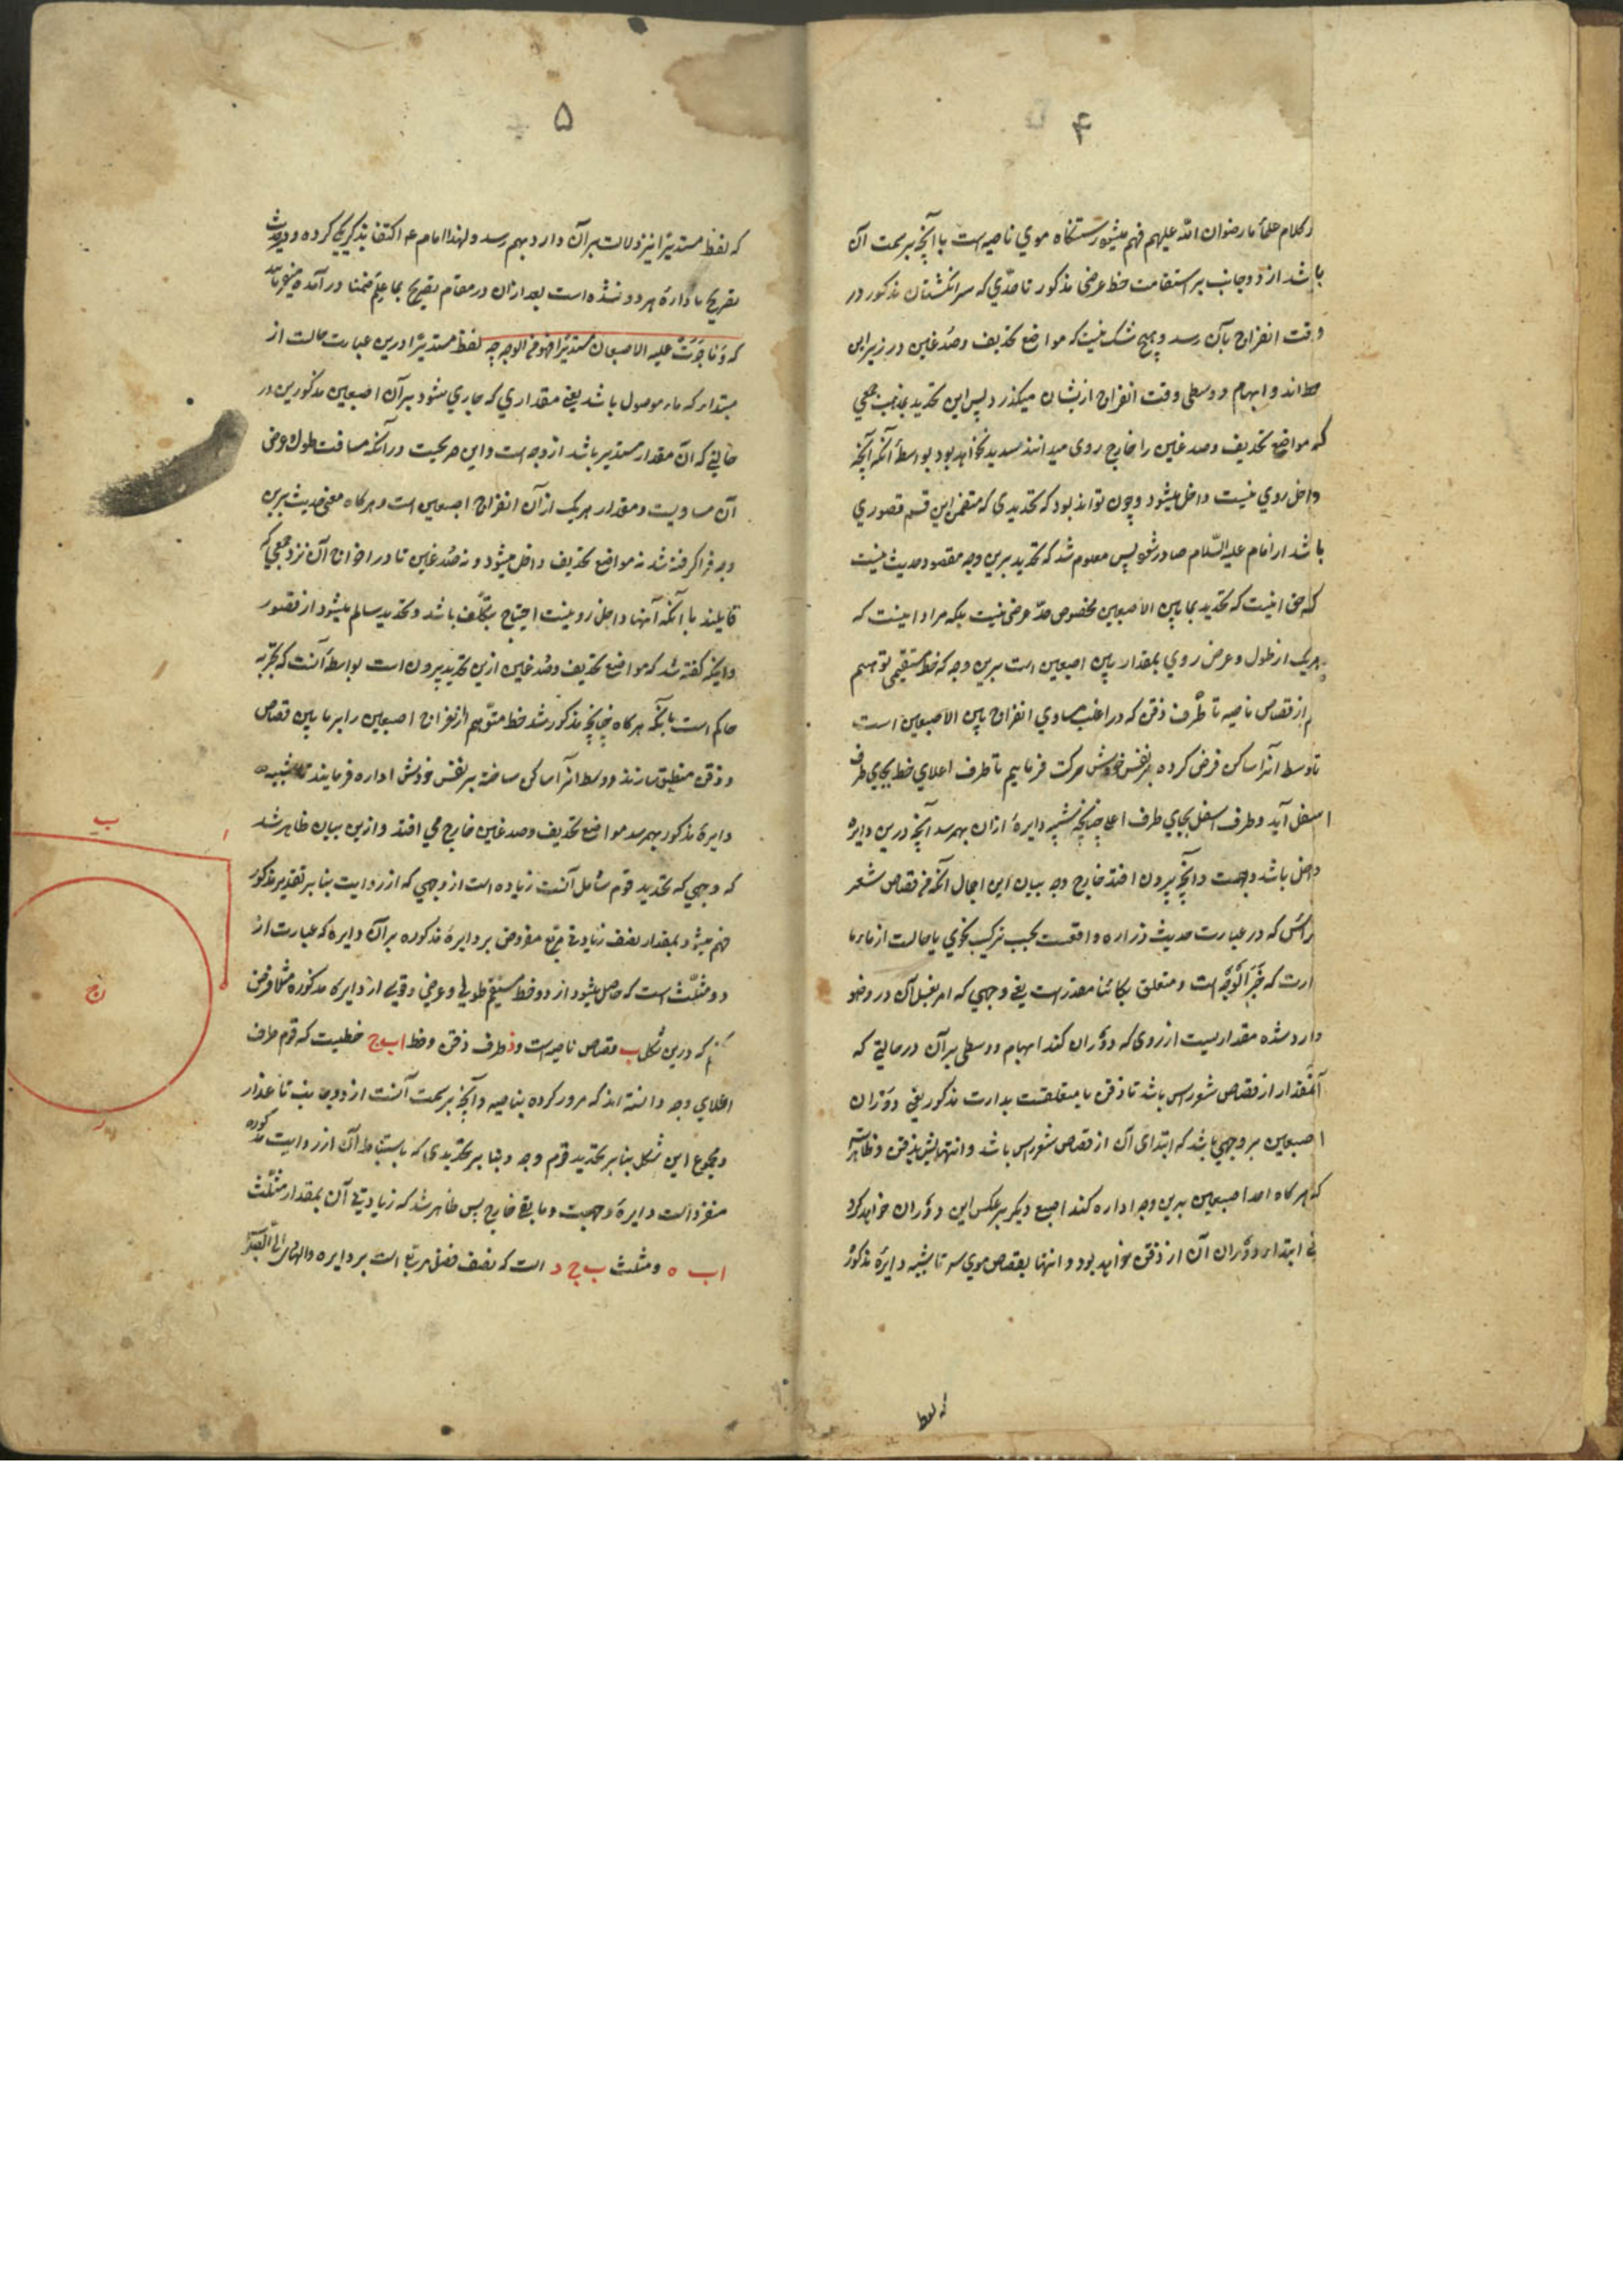 ۴
کلام علما رضوان الله علیهم فهم میشود رستنگاه موی ناصیه است با آنچه بر سمت آن
باشد از دو جانب بر استقامت خط عرضی مذکور تا حدّی که سر انگشتان مذکور در
وقت انفراج بآن رسد و هیچ شک نیست که مواضع تحذیف و صدغین در زیر این
خط اند و ابهام و وسطی وقت انفراج ازیشان میگذرد پس این تحدید بمذهب جمعی
که مواضع تحذیف و صدغین را خارج روی میدانند سدید نخواهد بود بواسطهٔ آنکه آنچه
داخل روی نیست داخل میشود و چون تواند بود که تحدیدی که متضمن این قسم قصوری
باشد از امام علیه السّلام صادر شود پس معلوم شد که تحدید برین وجه مقصود حدیث نیست
که حق اینست که تحدید بما بین الاصبعین مخصوص حدّ عرضی نیست بلکه مراد اینست که
هر یک از طول و عرض روی بمقدار بین اصبعین است برین وجه که خط مستقیمی توهیم
از قصاص ناصیه تا طرف ذقن که در اغلب مساوی انفراج بین الاصبعین است
تا وسط آنرا ساکن فرض کرده بر نفس خودش حرکت فرماییم تا طرف اعلای خط بجای طرف
اسفل آید و طرف اسفل بجای طرف اعلا چنانچه شبیه دایرهٔ ازان بهمرسد آنچه درین دایره
داخل باشد وجهست و آنچه بیرون افتد خارج وجه بیان این اجمال آنکه من قصاص شعر
راس که در عبارت حدیث زراره واقعست بحسب ترکیب نحوی یا حالست از ما
ارت که خبر الوجه است و متعلق بکائنا مقدر است یعنی وجهی که امر بغسل آن در وضو
وارد شده مقداریست از روی که دوران کند ابهام و وسطی بر آن در حالتی که
آنمقدار از قصاص شعر راس باشد تا ذقن یا متعلقست بدارت مذکور یعنی دوران
اصبعین بر وجهی باشد که ابتدای آن از قصاص شعر راس باشد و انتهایش بذقن و ظاهر است
که هر گاه احد اصبعین برین وجه اداره کند اصبع دیگر بر عکس این دوران خواهد کرد
ابتداء دوران آن از ذقن خواهد بود و انتها بقصاص موی سر تا شبیه دایرهٔ مذکور
که لفظ
۵
که لفظ مستدیرا نیز دلالت بر آن دارد بهم رسد و لهذا امام ع اکتفا بذکر یکی کرده و در حدیث
تصریح باداره هر دو نشده است بعد ازان در مقام تصریح بما علم ضمنا در آمده میفرماید
که و ما جرت علیه الاصبعان مستدیرا فهو من الوجه چه لفظ مستدیرا درین عبارت حالست از
مبتدا که ماء موصول باشد یعنی مقداری که جاری شود بر آن اصبعین مذکورین در
حالتی که آن مقدار مستدیر باشد از وجه است و این صریحست در آنکه مسافت طول و عرض
آن مساویست و مقدار هر یک از آن انفراج اصبعین است و هر گاه معنی حدیث برین
وجه فرا گرفته شد نه مواضع تحذیف داخل میشود و نه صدغین تا در اخراج آن نزد جمعی که
قایلند با آنکه آنها داخل رو نیست احتیاج بتکلّف باشد و تحدید سالم میشود از قصور
و اینکه گفته شد که مواضع تحذیف و صدغین ازین تحدید بیرون است بواسطهٔ آنست که تجربه
حاکم است بانکه هر گاه چنانچه مذکور شد خط متوّهم از انفراج اصبعین را بر ما بین قصاص
و ذقن منطبق سازند و وسط انرا ساکن ساخته بر نفس خودش اداره فرمایند تا شبیه
دایرهٔ مذکور بهمرسد مواضع تحذیف و صدغین خارج می افتد و ازین بیان ظاهر شد
که وجهی که تحدید قوم شامل آنست زیاده است از وجهی که از روایت بنا بر تقدیر مذکور
فهم میشود بمقدار نصف زیادتی مربع مفروض بر دایرهٔ مذکوره بر آن دایره که عبارت از
دو مثلّث است که حاصل میشود از دو خط مستقیم طولی و عرضی و قوسی از دایرهٔ مذکوره مثلا فرض
کنیم که درین شکل ب قصاص ناصیه است و د طرف ذقن و خط اب ج خطیست که قوم طرف
اعلای وجه دانسته اند که مرور کرده بناصیه و آنچه بر سمت آنست از دو جانب تا عذار
و مجموع این شکل بنا بر تحدید قوم وجه و بنا بر تحدیدی که باستنباط آن از روایت مذکوره
منفرد است دایرهٔ وجهست و ما بقی خارج پس ظاهر شد که زیادتی آن بمقدار مثلّث
اب ه و مثلث ب ج د است که نصف فضل مربّع است بر دایره و الهادی الی
ب
ا
ج